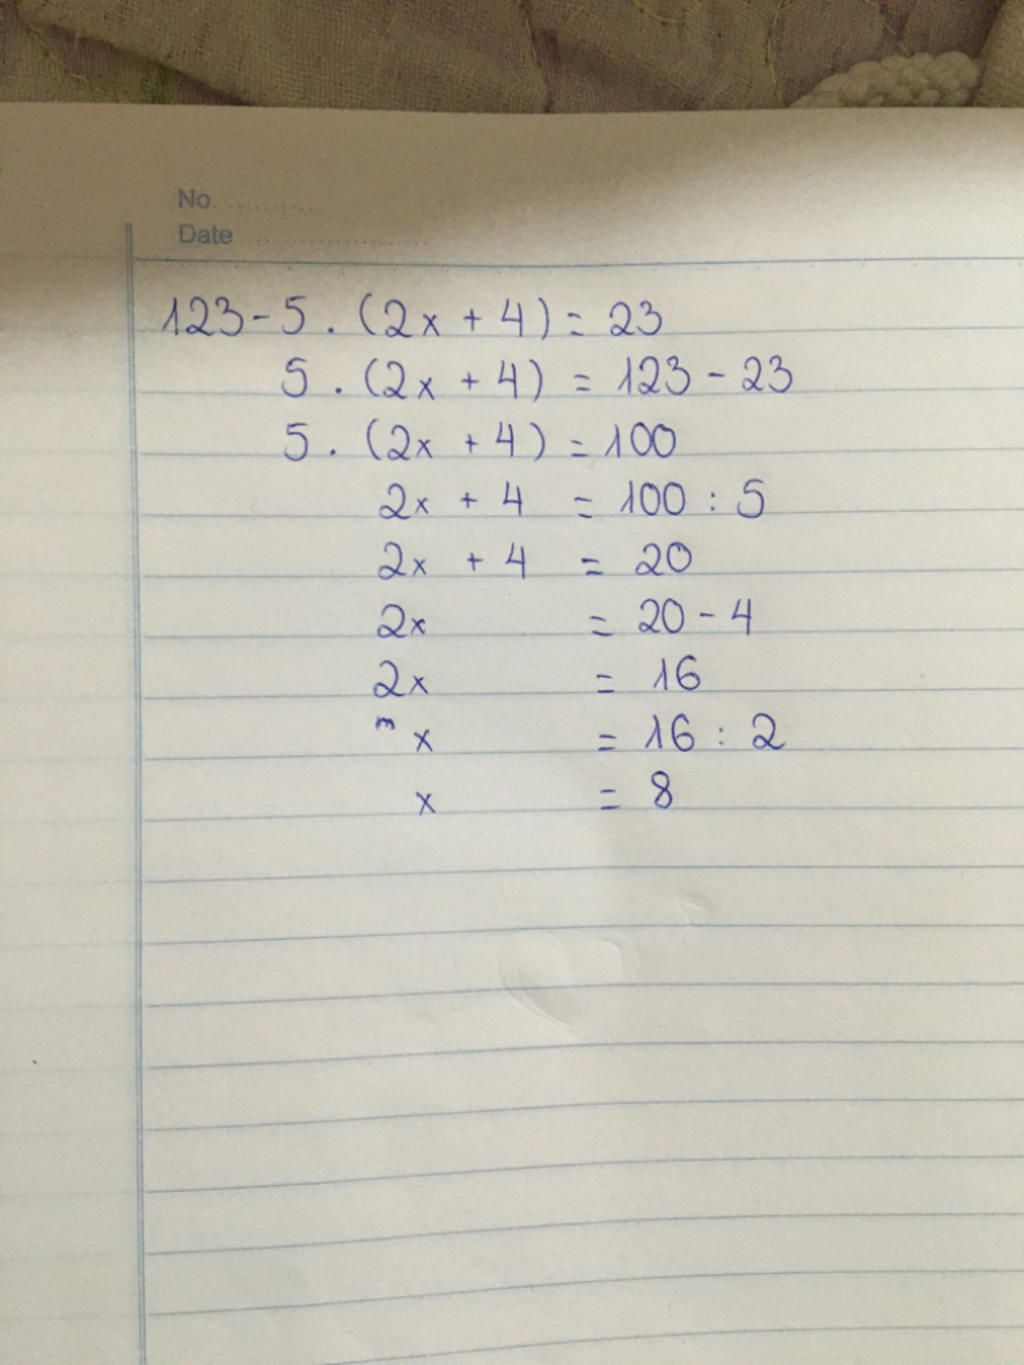 No. ...........
Date ......................
123 - 5 . (2x + 4) = 23
5 . (2x + 4) = 123 - 23
5 . (2x + 4) = 100
2x + 4 = 100 : 5
2x + 4 = 20
2x = 20 - 4
2x = 16
x = 16 : 2
x = 8